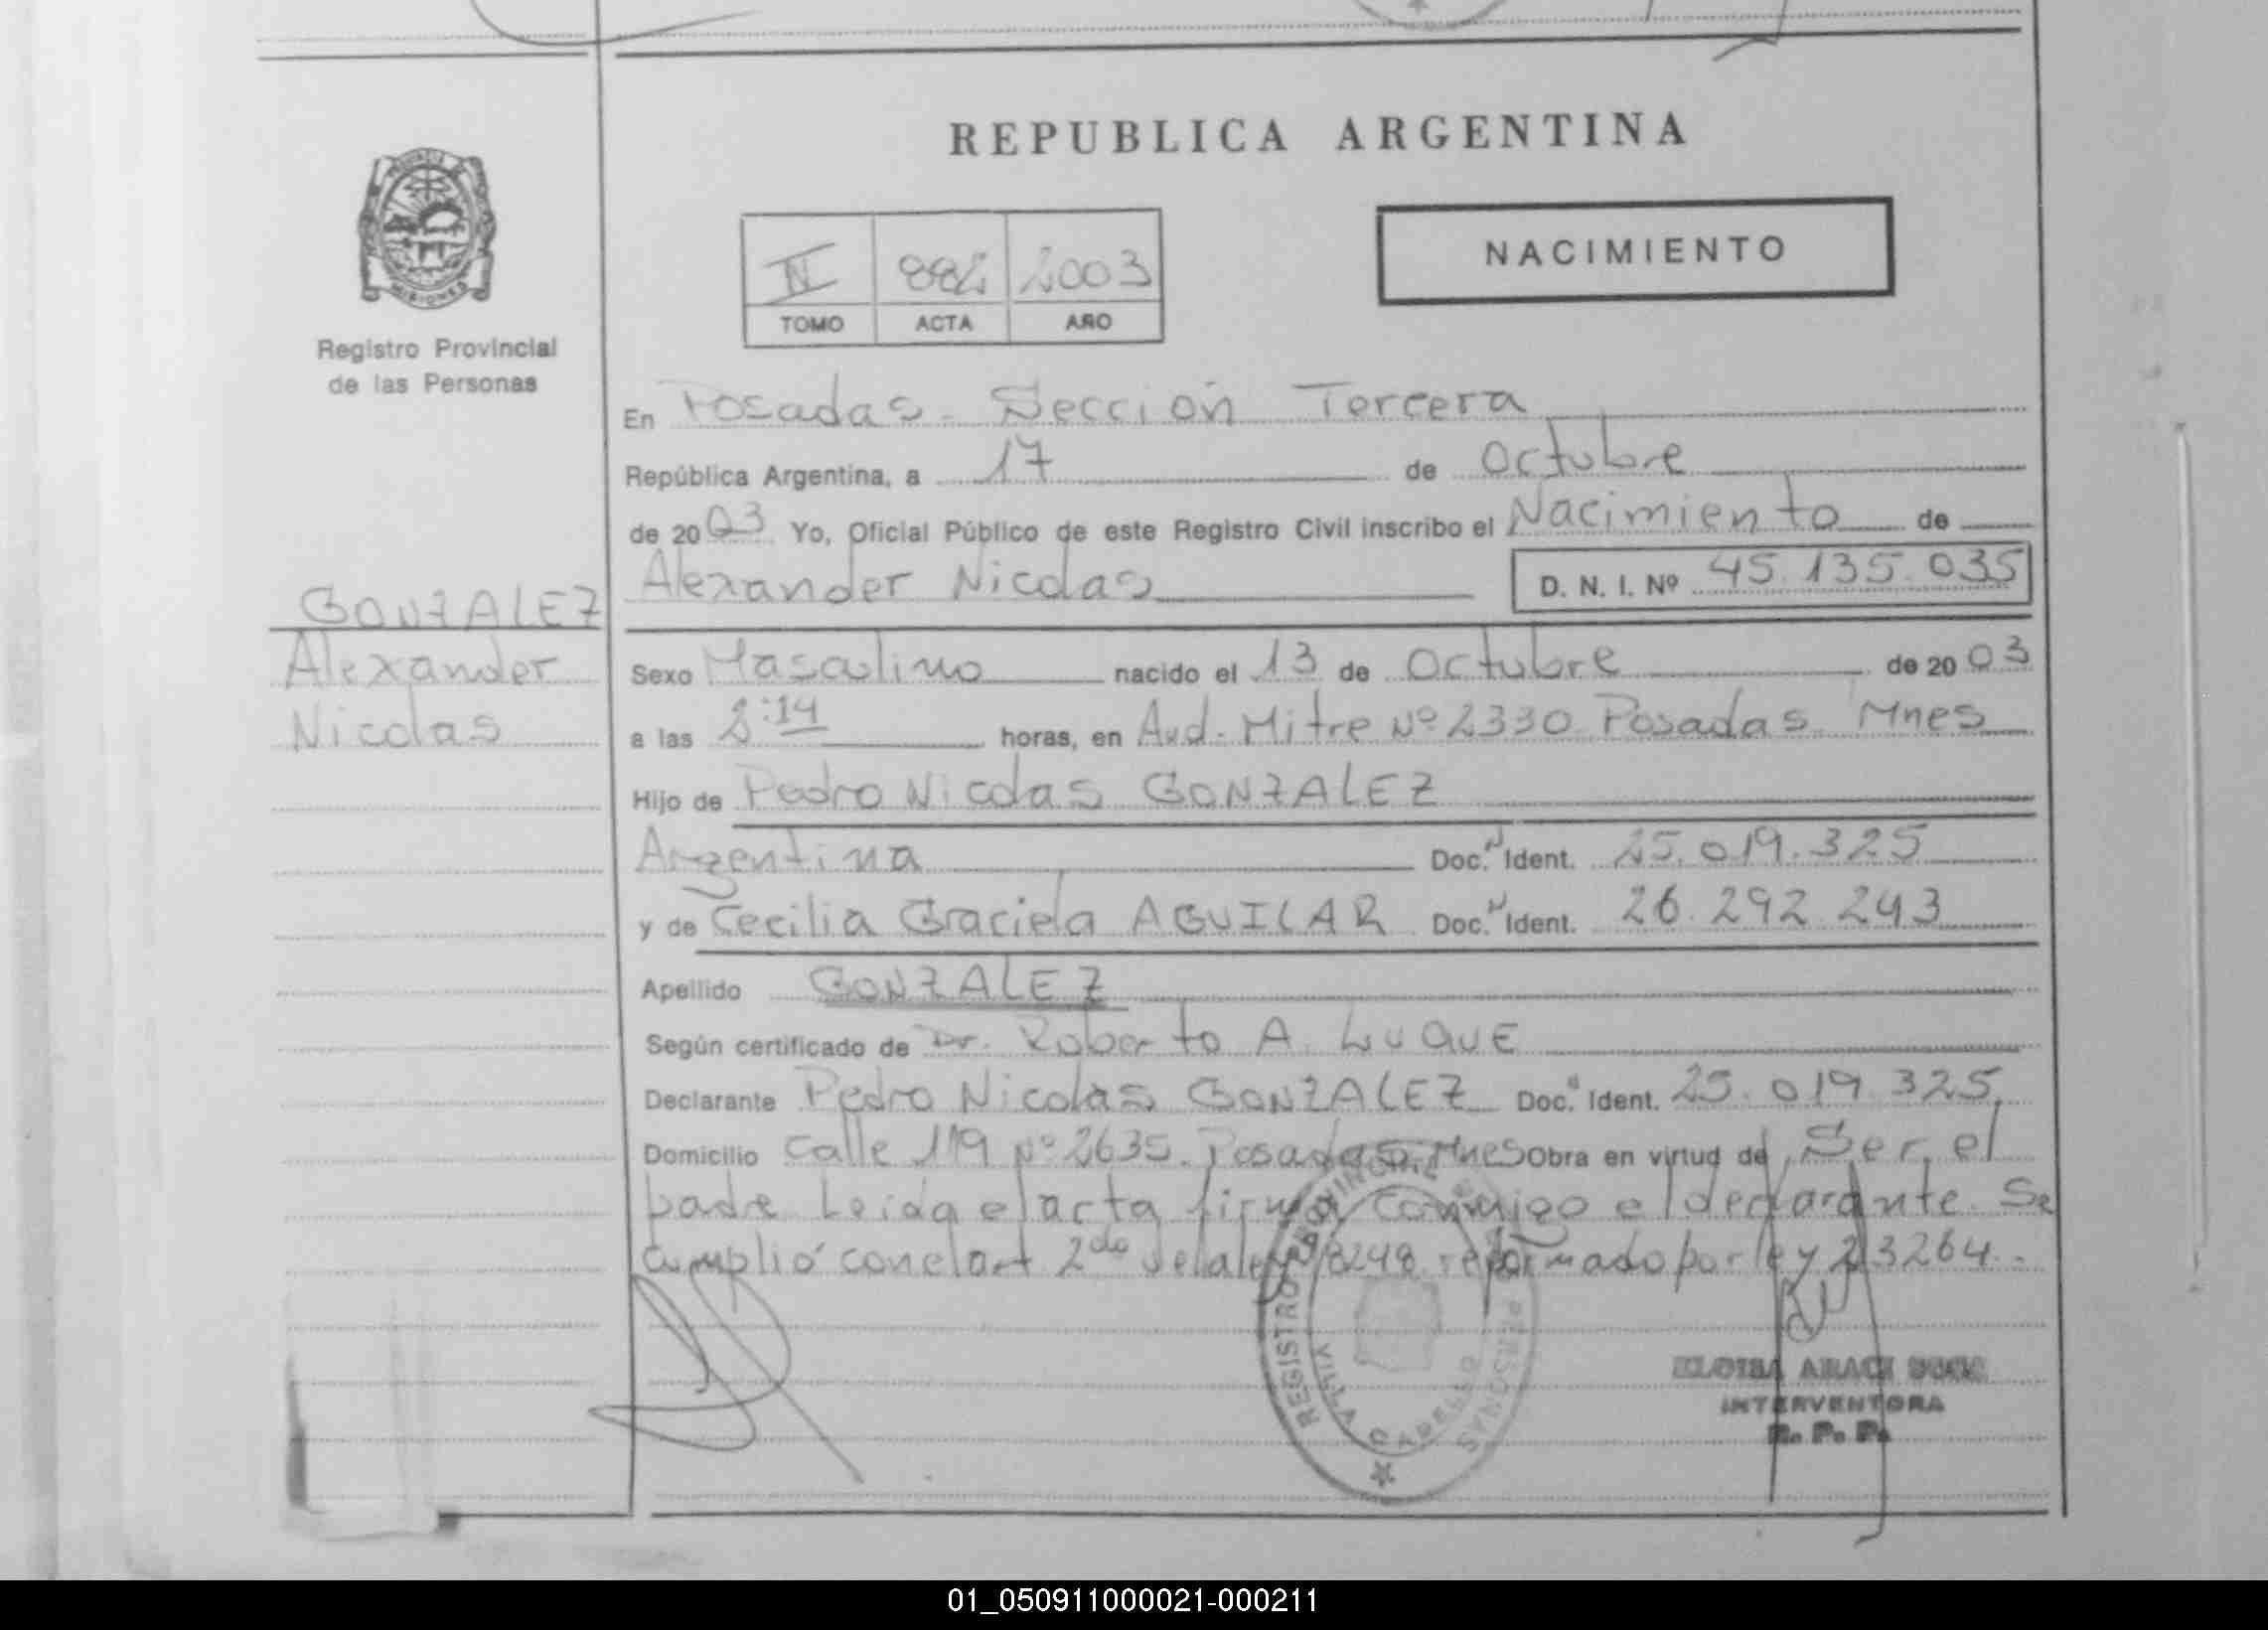 REPUBLICA ARGENTINA
NACIMIENTO
2003
TOMO ACTA AÑO
PROVINCIA DE
MISIONES
Registro Provincial
de las Personas
En Posadas - Sección Tercera
República Argentina, a 17 de Octubre
de 2003 Yo, Oficial Público de este Registro Civil inscribo el Nacimiento de
Alexander Nicolas D. N. I. Nº 45.135.035
GONZALEZ
Alexander
Nicolas
Sexo Masculino nacido el 13 de Octubre de 2003
a las 2:14 horas, en Avd. Mitre Nº 2330 Posadas Mnes
Hijo de Pedro Nicolas GONZALEZ
Argentina Doc. Ident. 25.019.325
y de Cecilia Graciela AGUILAR Doc. Ident. 26.292.243
Apellido GONZALEZ
Según certificado de Dr. Roberto A. LUQUE
Declarante Pedro Nicolas GONZALEZ Doc. Ident. 25.019.325
Domicilio Calle 119 Nº 2635. Posadas Mnes Obra en virtud de Ser el
padre Leida el acta firma conmigo el declarante. Se
cumplió con el art 2do de la ley 18248 reformado por ley 23264.
REGISTRO PROVINCIAL PERSONAS
VILLA CABELLO
ELOISA ARACI
INTERVENTORA
R. P. P.
01_050911000021-000211